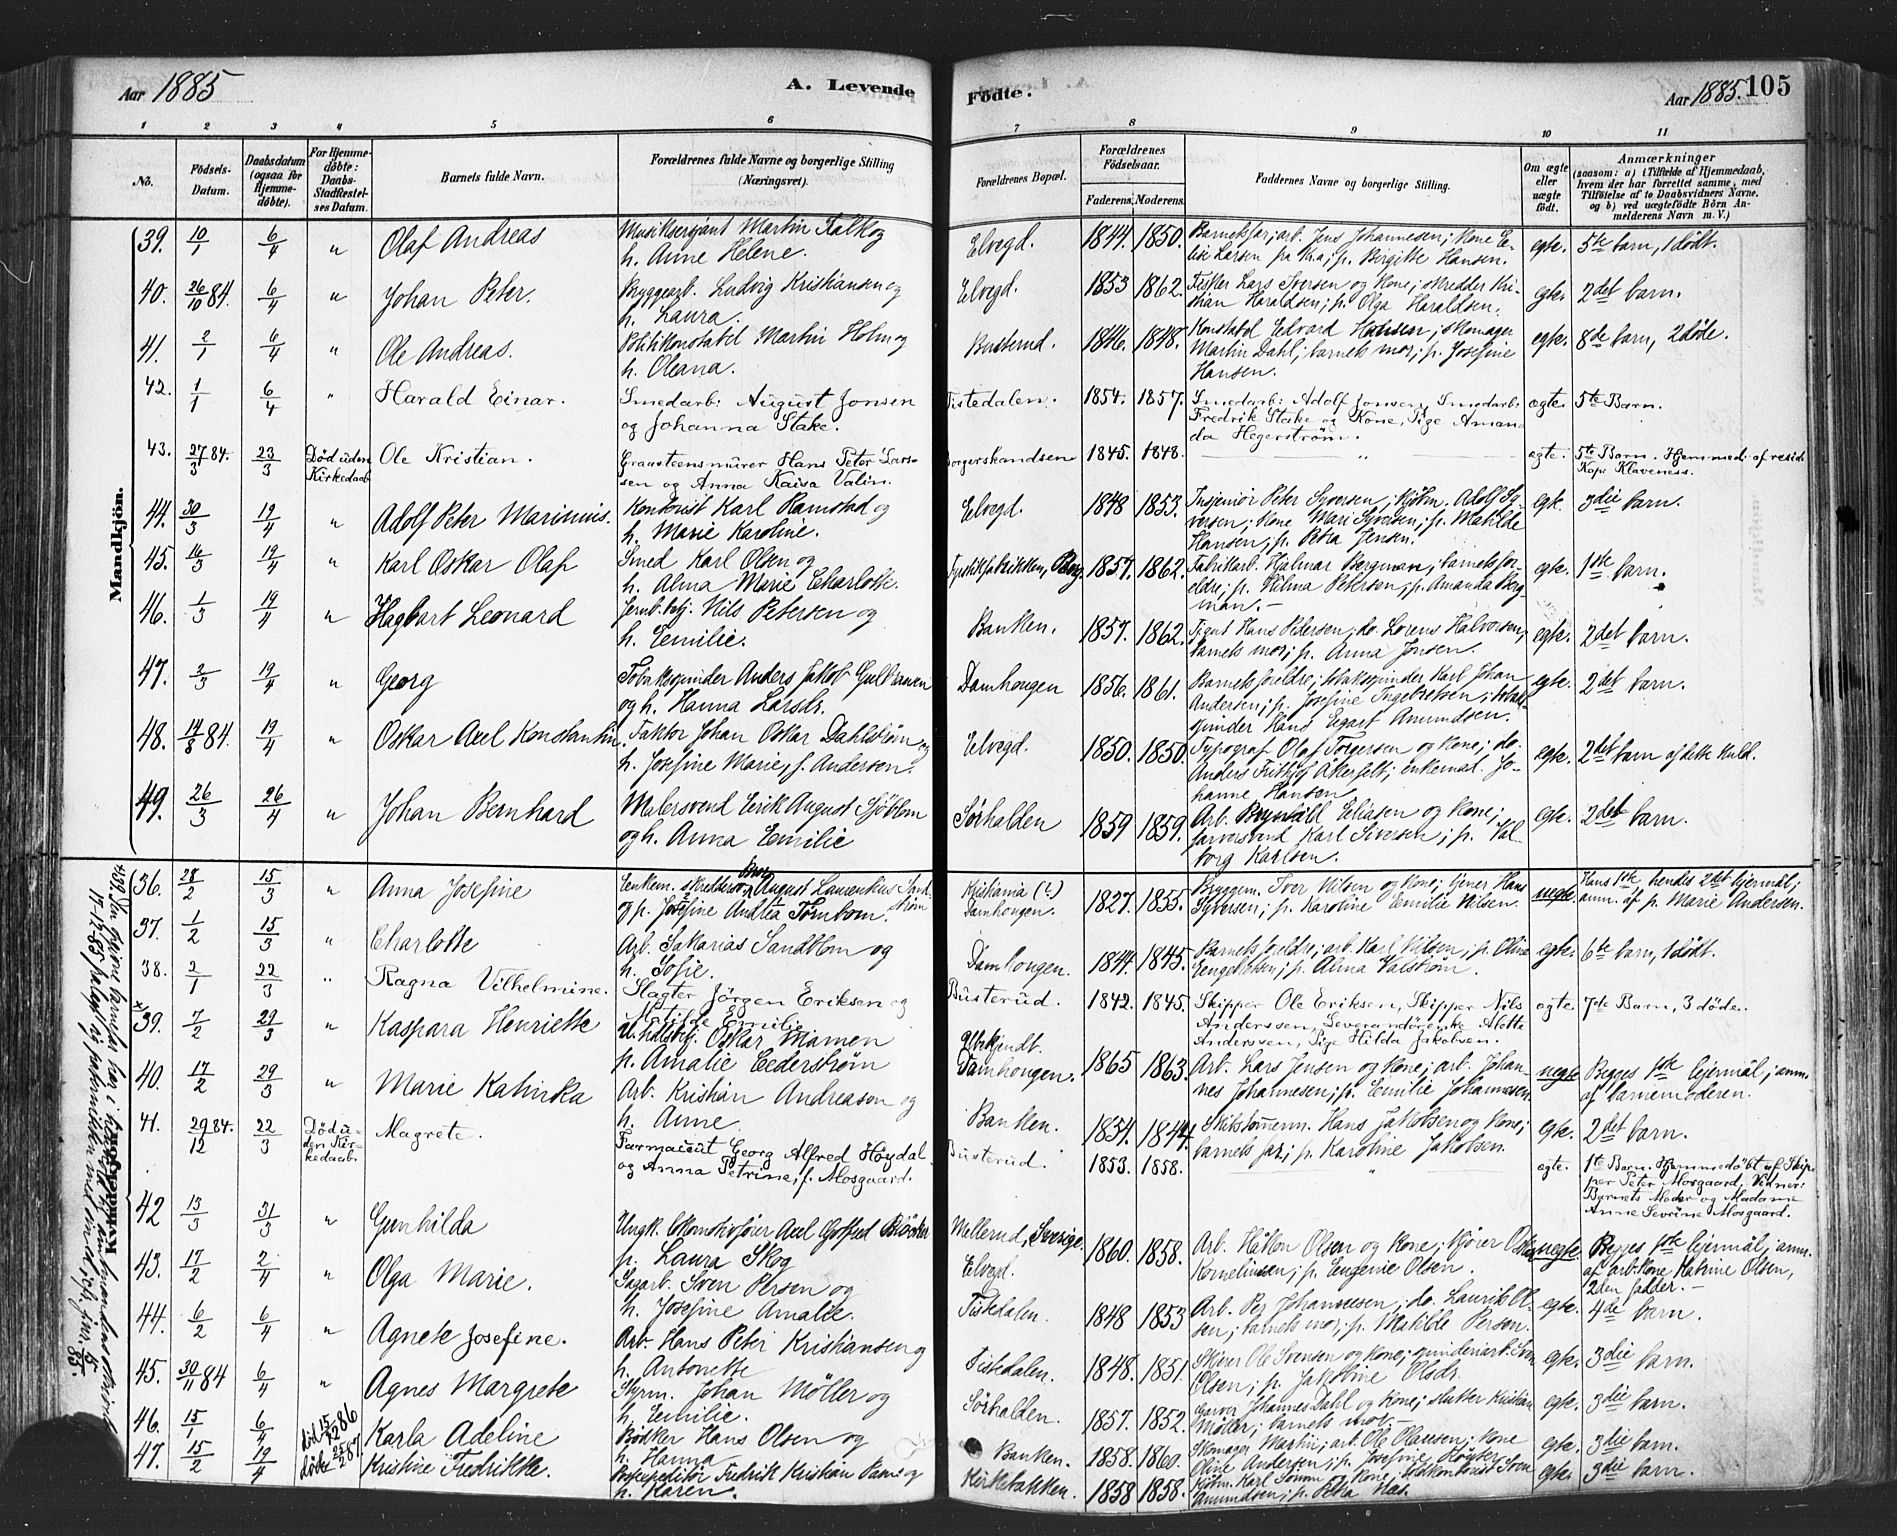 Aar 1885
A. Levende
Födte.
Aar 1885.
105
1 2 3 4 5 6 7 8 9 10 11
No.
Födsels-
Datum.
Daabsdatum
(ogsaa for
Hjemme-
döbte).
For Hjemme-
döbte:
Daabs-
Stadfæstel-
ses Datum.
Barnets fulde Navn.
Forældrenes fulde Navne og borgerlige Stilling
(Næringsvei).
Forældrenes Bopæl.
Forældrenes
Födselsaar.
Faderens. Moderens.
Faddernes Navne og borgerlige Stilling.
Om ægte
eller
uægte
födt.
Anmærkninger
(saasom: a) i Tilfælde af Hjemmedaab,
hvem der har forrettet samme, med
Tilföielse af to Daabsvidners Navne.
og b) ved uægtefödte Börn An-
melderens Navn m. V.)
Mandkjön.
39. 10/1 6/4 " Olaf Andreas
Musiksergiant Martin Falk og
h. Anne Helene.
Elvegd. 1844. 1850.
Barnets far; arb. Jens Johannesen; kone E-
lise Larsen fra Kra; p. Birgitte Hansen.
egte. 5te barn, 1 dødt.
40. 26/10 84. 6/4 " Johan Peter.
Bryggearb. Ludvig Kristiansen og
h. Laura.
Elvegd. 1853 1862.
Fisker Lars Iversen og kone; skredder Kri-
stian Haraldsen; p. Olga Haraldsen.
egte. 2det barn.
41. 2/1 6/4 " Ole Andreas.
Politikonstabel Martin Holm og
h. Oleana.
Busterud. 1846. 1848.
Konstabel Edvard Hansen; skomager
Martin Dahl; barnets mor; p. Josefine
Hansen.
egte. 8de barn, 2 døde.
42. 1/1 6/4 " Harald Einar.
Smedarb: August Jonsen
og Johanna Stake.
Tistedalen. 1854. 1857.
Smedarb: Adolf Jonsen, Smedarb:
Fredrik Stake og Kone, Pige Aman-
da Hegerstrøm.
ægte. 5te Barn.
43. 27/3 84. 23/3 Død uden
Kirkedaab
Ole Kristian.
Graasteensmurer Hans Peter Lars-
sen og Anna Kaisa Valin.
Borgerskandsen 1845. 1848. "
ægte. 5te Barn. Hjemmed. af resid.
Kap: Klaveness.
44. 30/3 19/4 " Adolf Peter Marinius.
Kontorist Karl Ramstad og
h. Marie Karoline.
Elvegd. 1848 1853.
Insjeniør Peter Syversen; kjøbm. Adolf Sy-
versen; kone Mari Syversen; p. Matilde
Hansen; p. Petra Jensen.
egte. 3die barn.
45. 16/3 19/4 " Karl Oskar Olaf
Smed Karl Olsen og
h. Alma Marie Charlotte.
1857. 1862.
Fabrikarb. Hjalmar Bergman; barnets for-
eldre; p. Hilma Petersen; p. Amanda Berg-
man.-
egte. 1ste barn.
46. 1/3 19/4 " Hagbart Leonard
Jernb. betj. Nils Petersen og
h. Emilie.
Banken. 1857. 1862.
Hans Pedersen; do. Lorens Halvorsen;
barnets mor; p. Anna Jonsen.
egte. 2det barn.
47. 2/3 19/4 " Georg
Tobaksspinder Anders Jakob Gulbransen
og h. Hanna Larsdr.
Damhougen 1856. 1861.
Barnets foreldre; tobaksspinder Karl Johan
Andersen; p. Josefine Ingebretsen; tobaks-
spinder Hans Egart Amundsen.
egte. 2det barn.
48. 14/8 84. 19/4 " Oskar Axel Konstantin.
Faktor Johan Oskar Dahlstrøm og
h. Josefine Marie, f. Andersen.
Elvegd. 1850. 1850.
Typograf Olaf Torgersen og kone; do.
Anders Frithjof Åkerfelt; enkemad. Jo-
hanne Hansen
egte. 2det barn af dette kuld.
49. 26/3 26/4 " Johan Bernhard
Malersvend Erik August Sjöblom
og h. Anna Emilie
Sørhalden 1859 1859.
Arb. Eliasen og kone;
farversvend Karl Siversen; p. Val-
borg Karlsen.
egte. 2det barn.
Kvindekjön.
36. 28/2 15/3 " Anna Josefine
Enkem. skreddersv. August Laurentius Sand-
strøm
og p. Josefine Andrea Tømbom.
Kristiania (?)
Damhougen. 1827. 1855.
Bryggem. Iver Nilsen og kone; tjener Hans
Syversen; p. Karoline Emilie Nilsen.
uegte. Hans 1ste, hendes 2det leiermål;
anm. af p. Marie Andersen.
37. 1/2 15/3 " Charlotte
Arb. Sakarias Sandblom og
h. Sofie.
Damhougen. 1844. 1845.
Barnets foreldre; arb. Karl Nilsen; p. Oline
Engebretsen; p. Alma Valstrøm.
egte. 6te barn, 1 dødt.
38. 2/1 22/3 " Ragna Vilhelmine.
Slagter Jörgen Eriksen og
Matilde Emilie
Busterud. 1842. 1845.
Skipper Ole Eriksen, Skipper Nils
Anderssen, Leverandørenke Alette
Anderssen, Pige Hilda Jakobsen.
ægte 7de Barn, 3 døde.
x 39. 7/2 29/3 " Kaspara Henriette
Oskar Mamen
p. Amalie Cederstrøm
Ubekjendt.
Damhougen. 1865 1863.
Arb. Lars Jensen og kone; arb. Johan-
nes Johannesen; p. Emilie Johannesen.
uegte Begges 1ste leiermål; anm.
af barnemoderen.
40. 17/2 29/3 " Marie Katinka
Arb. Kristian Andreason og
h. Anne
Banken. 1854. 1844.
Hans Jakobsen og kone;
barnets far; p. Karoline Jakobsen.
egte. 2det barn.
41. 29/12 84. 22/3 Død u-
den Kir-
kedaab.
Magrete.
Farmaceut Georg Alfred Høydal
og Anna Petrine, f. Mosgaard.
Busterud. 1853. 1858. "
ægte. 1ste Barn. Hjemmedøbt af Skip-
per Peter Mosgaard, Vidner:
Barnets Moder og Madame
Anne Sevrine Mosgaard.
42 13/3 31/3 " Gunhilda
Ungk. lokomotivfører Axel Gotfred Bäcker
p. Laura Skog
Mellerud, Sverige.
Elvegd. 1860. 1858.
Arb. Håkon Olsen og kone; kjører Oskar
Kornelinssen; p. Eugenie Olsen.
uegte Begges 1ste leiermål; anm.
af arb.kone Katrine Olsen,
2den fadder.-
43. 17/2 2/4 " Olga Marie.
Sagarb. Sven Persen og
h. Josefine Amalie.
Tistedalen. 1848 1853
Arb. Per Johannesen; do. Laurits Ol-
sen; barnets mor; p. Matilde Persen.
egte. 4de barn.
44. 6/2 6/4 " Agnete Josefine.
Arb. Hans Peter Kristiansen og
h. Antonette
Tistedalen. 1848. 1851.
Skjører Ole Svensen og kone; spinderiarb. Sven
Olsen; p. Jakobine Olsdr.
egte. 3die barn.
45. 30/11 84 6/4 " Agnes Margrete
Styrm. Johan Møller og
h. Emilie.
Sørhalden. 1857. 1852.
Garver Johannes Dahl og kone; slutter Kristian
Møller; barnets mor.-
egte. 3die barn.
46. 15/1 6/4 død 15/12 86 Karla Adeline
Bødker Hans Olsen og
h. Hanna
Banken. 1858. 1860.
Skomager Martin; arb. Ole Olaussen; kone
Oline Andersen; p. Josefine Høyster
egte. 3die barn.
47. 15/2 19/4 Kristine Fredrikke.
Fredrik Kristian og
h. Karen.
Kirkebakken. 1858 1858.
Kjøbm. Karl og kone; Sven
Amundsen; p. Petra Næs.
egte. 3die barn.